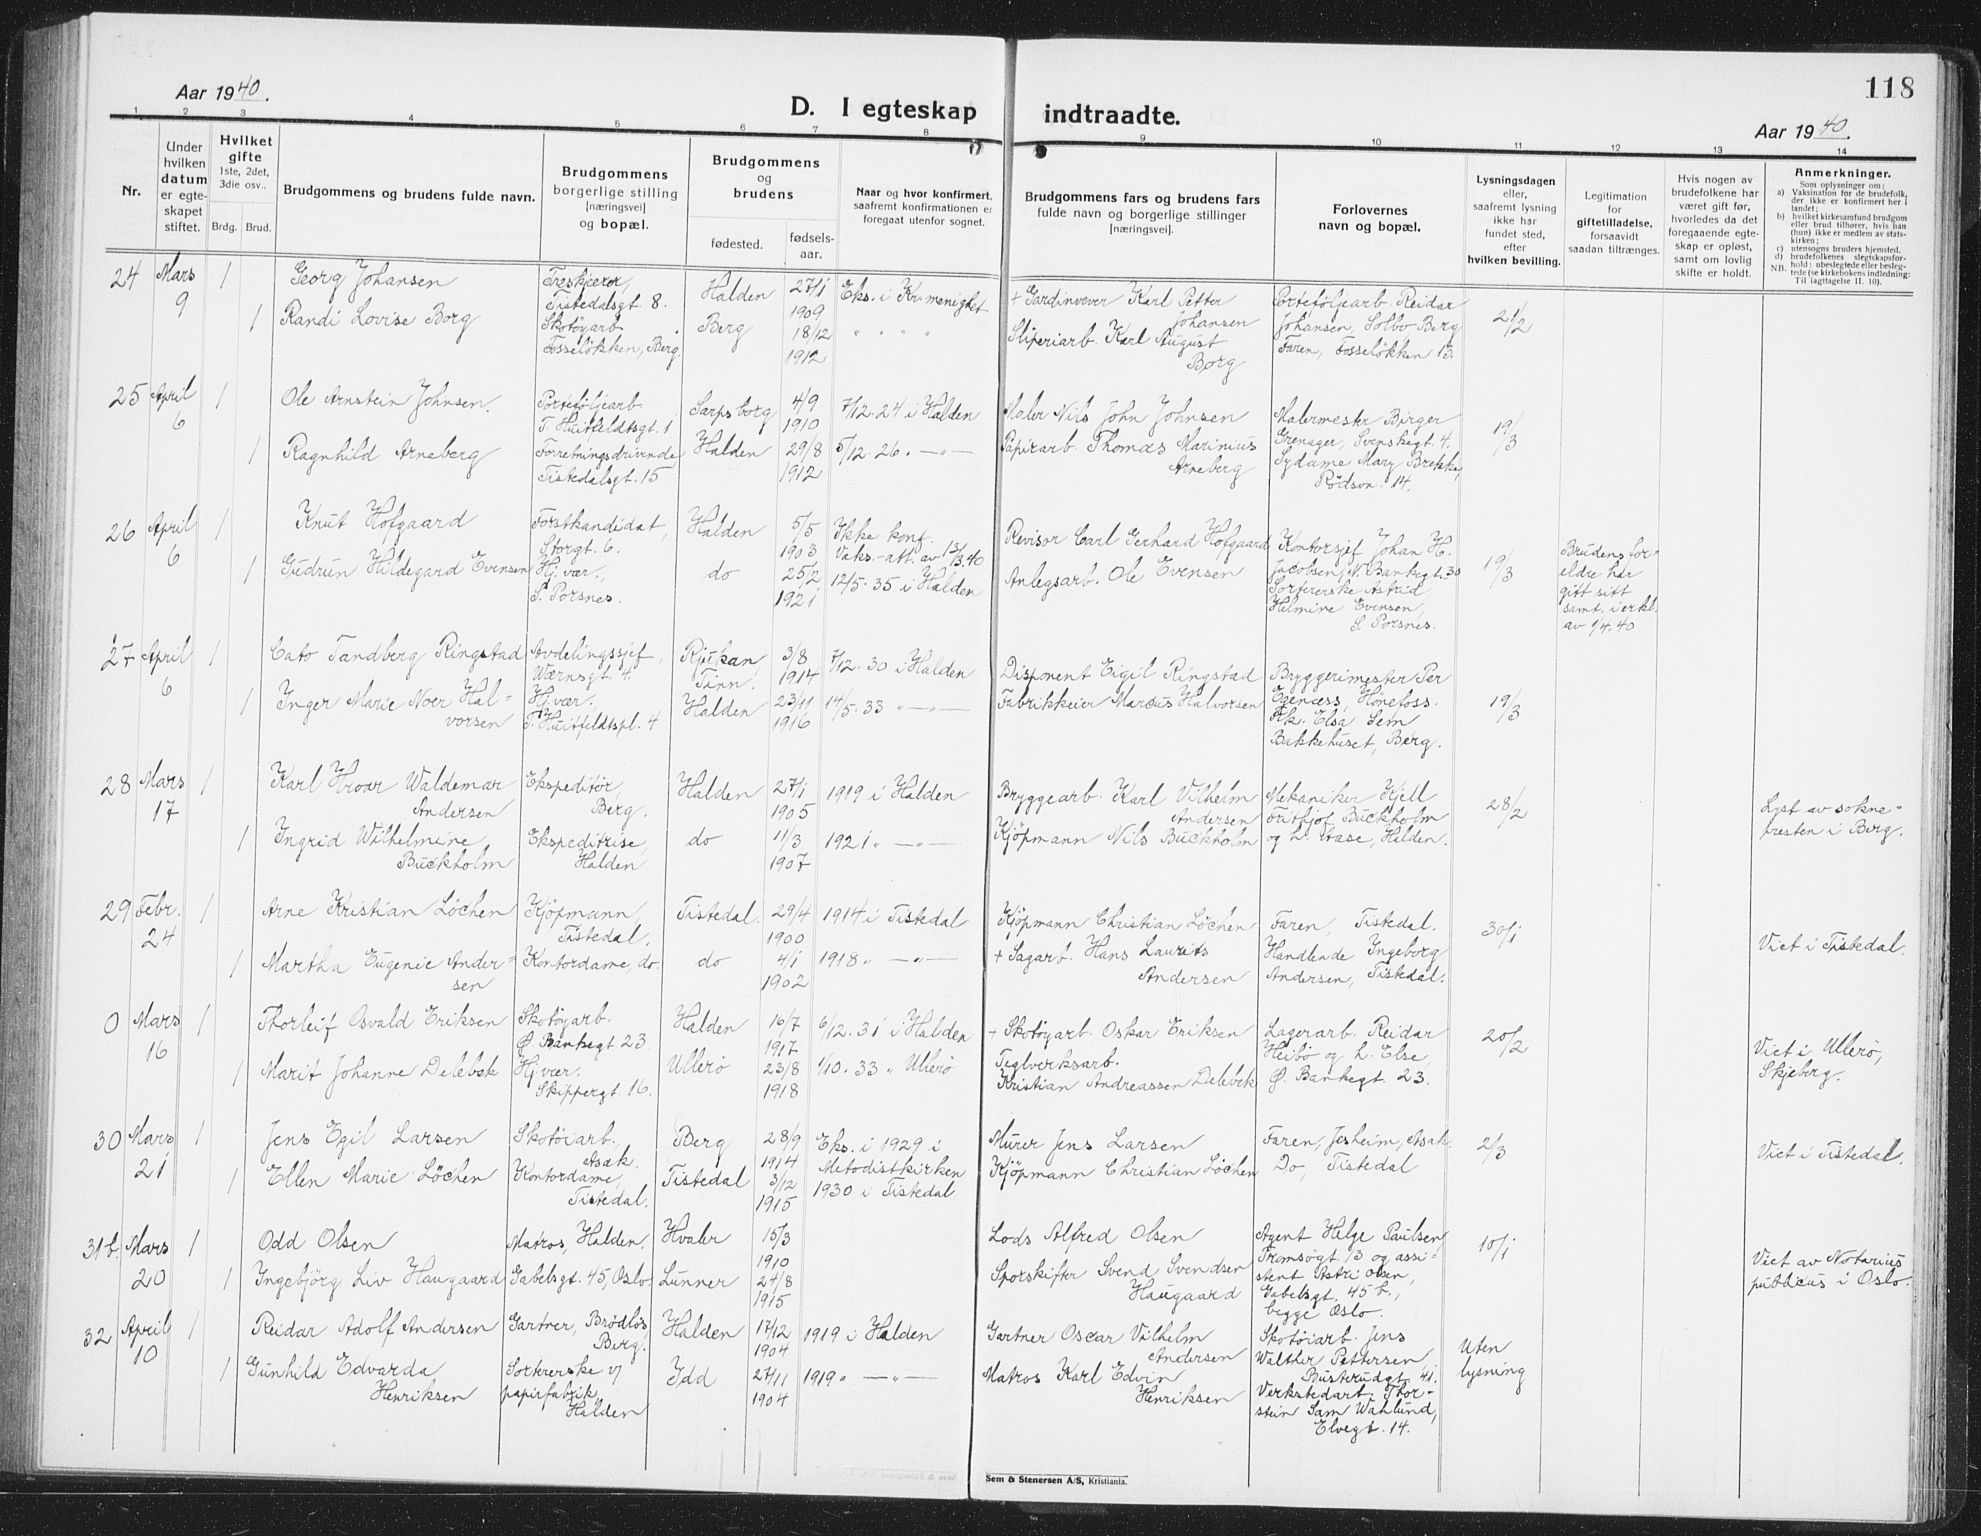 118
Aar 1940.
D. I egteskap indtraadte.
Aar 1940.
1 2 3 4 5 6 7 8 9 10 11 12 13 14
Nr.
Under hvilken datum er egteskapet stiftet.
Hvilket gifte
1ste, 2det, 3die osv..
Brdg. Brud.
Brudgommens og brudens fulde navn.
Brudgommens borgerlige stilling [næringsvei] og bopæl.
Brudgommens og brudens
fødested.
fødselsaar.
Naar og hvor konfirmert, saafremt konfirmationen er foregaat utenfor sognet.
Brudgommens fars og brudens fars fulde navn og borgerlige stillinger [næringsvei].
Forlovernes navn og bopæl.
Lysningsdagen eller, saafremt lysning ikke har fundet sted, efter hvilken bevilling.
Legitimation for giftetilladelse, forsaavidt saadan tiltrænges.
Hvis nogen av brudefolkene har været gift før, hvorledes da det foregaaende egteskap er opløst, samt om lovlig skifte er holdt.
Anmerkninger.
Som oplysninger om:
a) Vaksination for de brudefolk, der ikke er konfirmert her i landet;
b) hvilket kirkesamfund brudgom eller brud tilhører, hvis han (hun) ikke er medlem av statskirken;
c) utensogns bruders hjemsted.
d) brudefolkenes slegtskapsforhold: ubeslegtede eller beslegtede (se kirkebokens indledning: Til iagttagelse II. 10).
NB.
24 Mars 9 1 Georg Johansen Treskjerer, Tistedalsgt 8. Halden 27/1 1909 Eks. i Kr. menighet + Gardinvever Karl Petter Johansen Porteføljearb. Reidar Johansen, Solbo Berg 21/2
1 Randi Lovise Borg Skotøyarb. Fosseløkken, Berg. Berg 18/12 1912 " " " " Sliperiarb. Karl August Borg Faren, Fosseløkken 13.
25 April 6 1 Ole Arnstein Johnsen. Porteføljearb. T. Huitfeldtsgt. 1 Sarpsborg 4/9 1910 7/12.24 i Halden Maler Nils John Johnsen Malermester Birger Grenager, Svenskegt. 4. 19/3
1 Ragnhild Arneberg Forretningsdrivende Tistedalsgt. 15 Halden 29/8 1912 5/12.26. —"— Papirarb. Thomas Marinius Arneberg Sydame Mary Brekke, Rødsvn. 14.
26 April 6 1 Knut Hofgaard Forstkandidat, Storgt. 6. Halden 5/5 1903 Ikke konf. Vaks.-att. av 13/3.40 Revisor Carl Gerhard Hofgaard Kontorsjef Johan H. Jacobsen, N. Bankegt. 30 19/3 Brudens foreldre har gitt sitt samt. i erkl. av 1/4.40
1 Gudrun Hildegard Evensen Hj. vær., S. Porsnes. do 25/2 1921 12/5.35 i Halden Anlegsarb. Ole Evensen Sortererske Astrid Helmine Evensen, S. Porsnes.
27 April 6 1 Cato Tandberg Ringstad Avdelingssjef, Wærnsgt. 4 Rjukan, Tinn. 3/8 1914 7/12.30 i Halden Disponent Eigil Ringstad Bryggerimester Per Egenæss, Hönefoss. 19/3
1 Inger Marie Noer Halvorsen Hj. vær. T. Huitfeldtspl. 4 Halden 23/11 1916 14/5.33 " —"— Fabrikkeier Marcus Halvorsen Frk. Elsa Sem Bakkehuset, Berg.
28 Mars 17 1 Karl Hroar Waldemar Andersen Ekspeditör, Berg. Halden 27/1 1905 1919 i Halden Bryggearb. Karl Vilhelm Andersen Mekaniker Kjell Fritjof Buckholm og h. Aase, Halden. 28/2 Lyst av sognepresten i Berg.
1 Ingrid Wilhelmine Buckholm Ekspeditrise, Halden do 11/3 1907 1921 " —"— Kjöpmann Nils Buckholm
29 Febr. 24 1 Arne Kristian Löchen Kjöpmann, Tistedal. Tistedal. 29/4 1900 1914 i Tistedal Kjöpmann Christian Löchen Faren, Tistedal. 30/1 Viet i Tistedal.
1 Martha Eugenie Andersen Kontordame, do. do 4/1 1902 1918 " —"— + Sagarb. Hans Laurits Andersen Handlende Ingeborg Andersen, Tistedal.
0 Mars 16 1 Thorleif Osvald Eriksen Skotöyarb. Ø. Bankegt 23. Halden 16/7 1917 6/12.31 i Halden + Skotöyarb. Oskar Eriksen Lagerarb. Reidar Heibö og h. Else, Ø. Bankegt. 23. 20/2 Viet i Ullerö, Skjeberg.
1 Marit Johanne Delebek Hj. vær. Skippergt. 16. Ullerö 23/8 1918 1/10.33 " Ullerö Teglverksarb. Kristian Andreassen Delebek
30 Mars 21 1 Jens Egil Larsen Skotöiarb., Asak. Berg 28/9 1914 Eks. i 1929 i Metodistkirken Murer Jens Larsen Faren, Jesheim, Asak. 2/3 Viet i Tistedal.
1 Ellen Marie Löchen Kontordame, Tistedal. Tistedal 3/12 1915 1930 i Tistedal Kjöpmann Christian Löchen Do, Tistedal
31b. Mars 20 1 Odd Olsen Matros, Halden. Hvaler 15/3 1910 Lods Alfred Olsen Agent Helge Paulsen, Tromsögt. 13 og assistent Astri Olsen, Gabelsgt. 45 b., begge Oslo. 10/1 Viet av Notarius publicus i Oslo.
1 Ingebjörg Liv Haugaard Gabelsgt. 45, Oslo. Lunner 24/8 1915 Sporskifter Svend Svendsen Haugaard
32 April 10 1 Reidar Adolf Andersen Gartner, Brödlös, Berg. Halden 17/12 1904 1919 i Halden Gartner Oscar Vilhelm Andersen Skotöiarb. Jens Walther Pettersen, Busterudgt. 41. Uten lysning
1 Gunhild Edvarda Henriksen Sortererske v/ papirfabrik, Halden Idd 27/11 1904 1919 " —"— Matros Karl Edvin Henriksen Verkstedarb. Thorstein Sam Wahlund, Elvegt. 14.
Sem & Stenersen A/S, Kristiania.